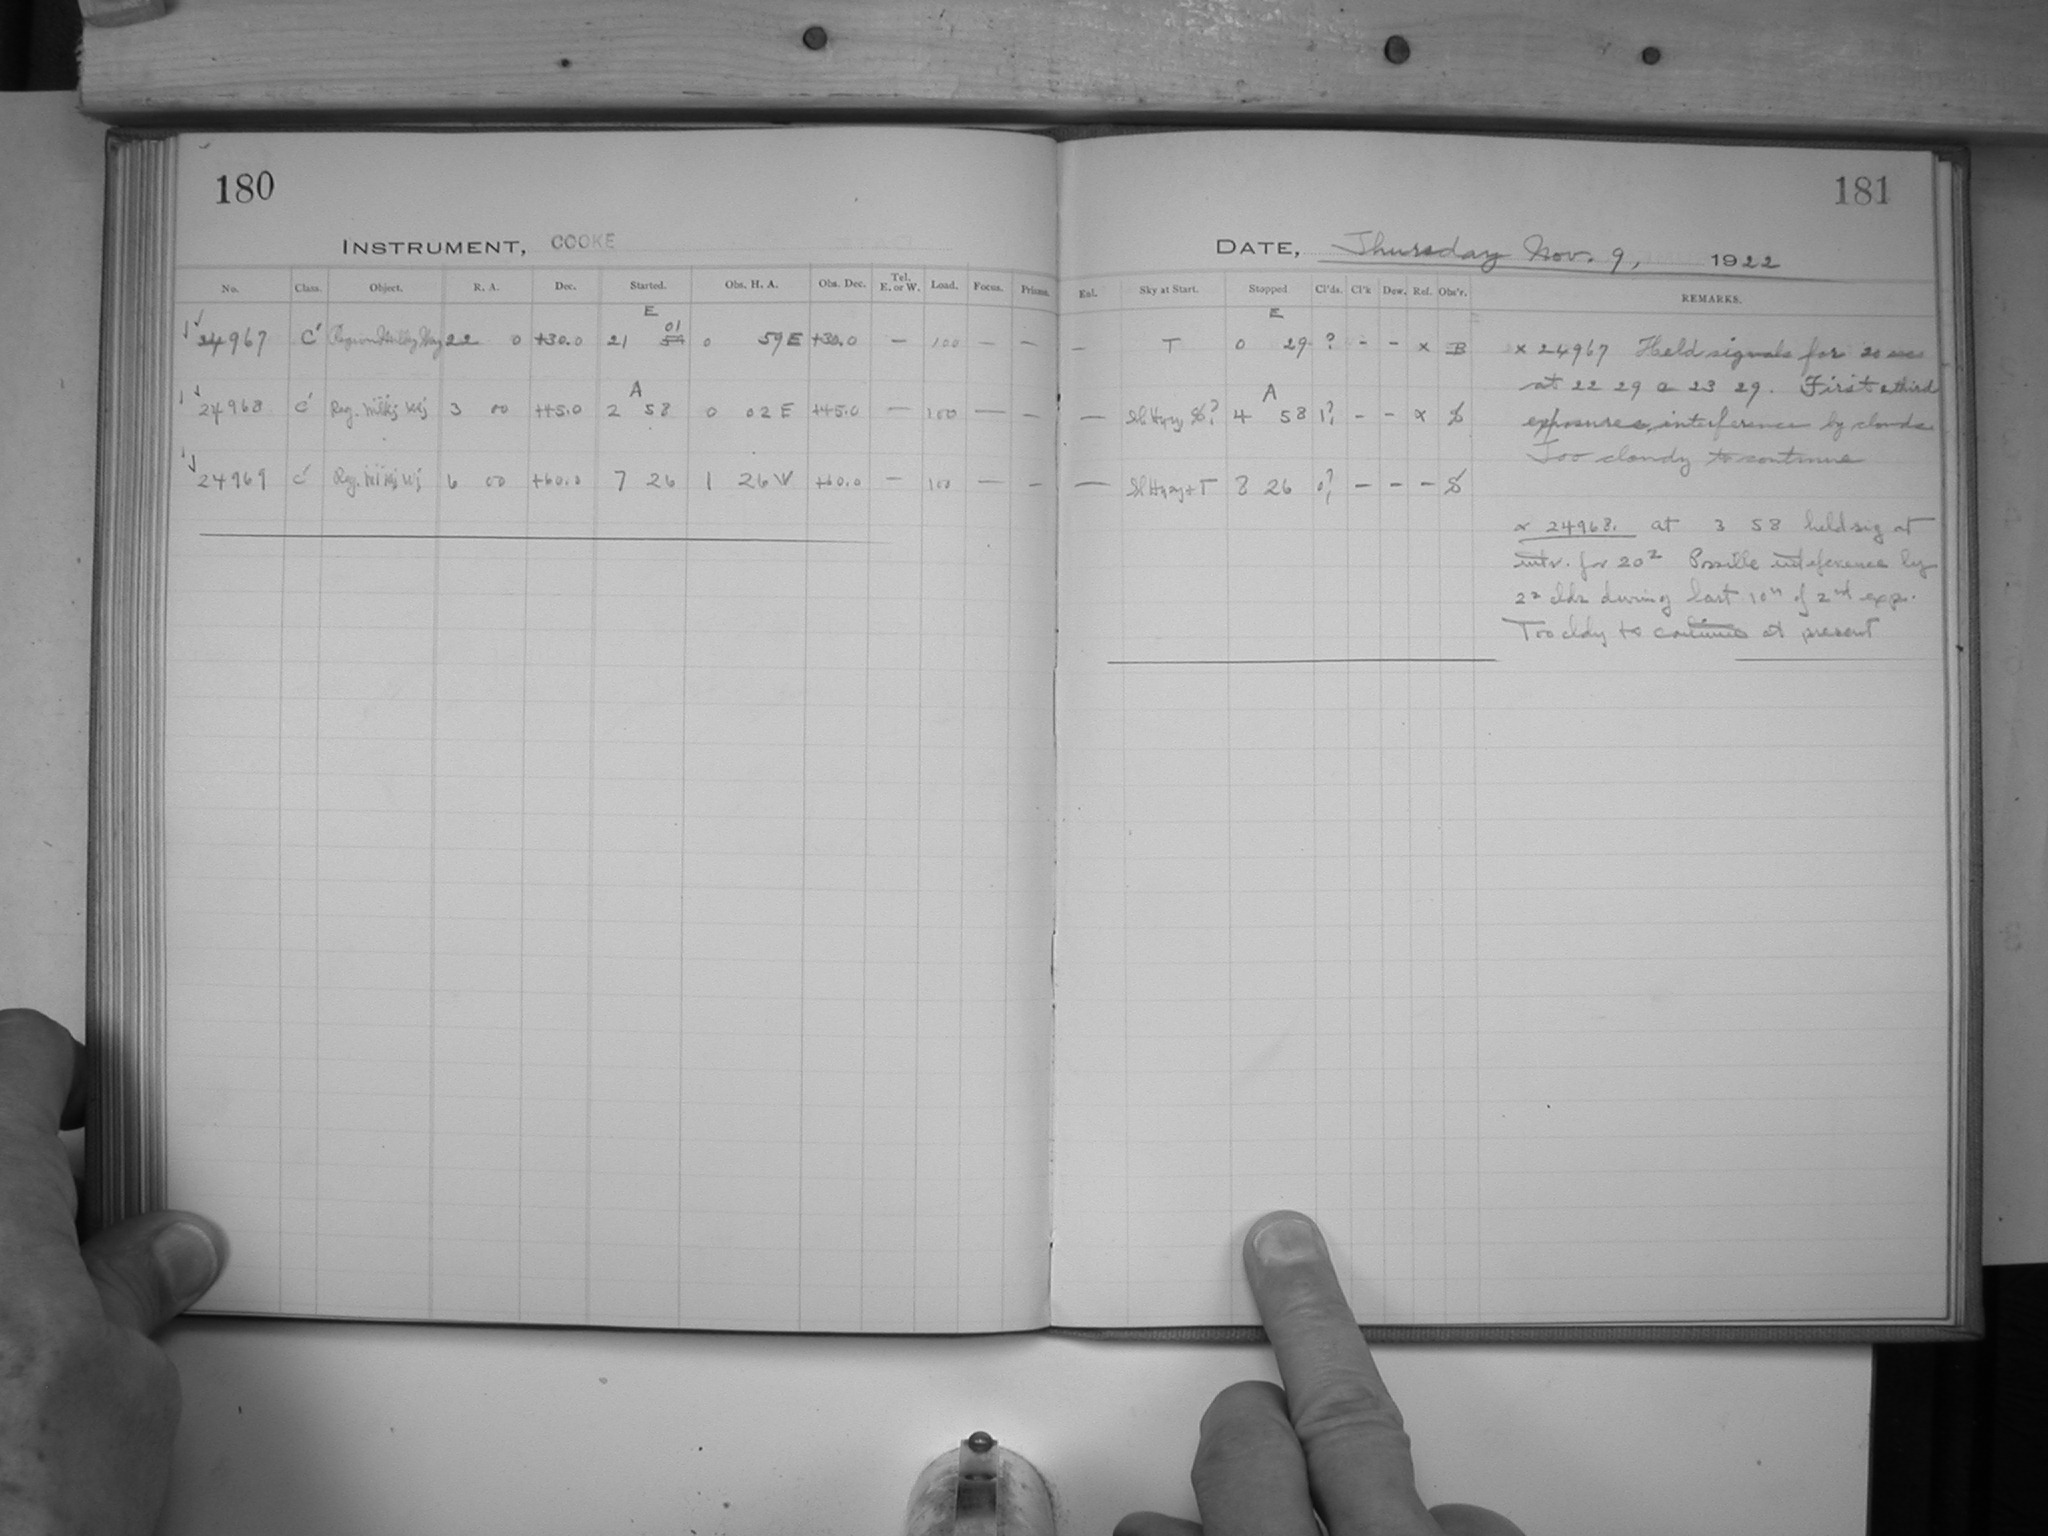 180
181
INSTRUMENT, COOKE
DATE, Thursday Nov. 9, 1922
No. Class. Object. R. A. Dec. Started. Obs. H. A. Obs. Dec. Tel. E. or W. Load. Focus. Prisms. Enl. Sky at Start. Stopped Cl'ds. Cl'k Dew. Ref. Obs'r. REMARKS.
E E
24967 C' Region Milky Way 22 0 +30.0 21 01 0 59 E +30.0 — 100 — — — T 0 29 ? - - x B
A A
24968 C' Reg. Milky Wy 3 00 +45.0 2 58 0 02 E +45.0 — 100 — — — Sl Hazy 4 58 1? - - x
24969 C' Reg. Milky Wy 6 00 +60.0 7 26 1 26 W +60.0 — 100 — — — Sl Hazy + T 8 26 0? - - -
x 24967 Held signals for 20 sec
at 22 29 & 23 29. First & third
exposures, interference by clouds
Too cloudy to continue
x 24968. at 3 58 held sig at
intr. for 20 Possible interference by
clds during last 10m of 2nd exp.
Too cldy to continue at present